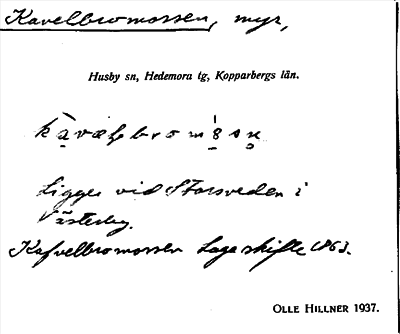 Kavelbromossen, myr,
Husby sn, Hedemora tg, Kopparbergs län.
Ligger vid Storsveden i
Västerby.
Kafvelbromossen Laga skifte 1863.
OLLE HILLNER 1937.